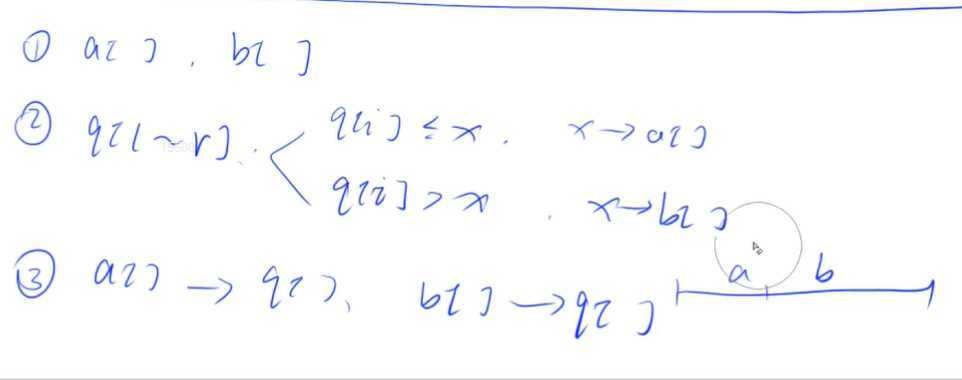 ① a[ ], b[ ]
② q[l~r]. q[i] ≤ x. x→a[ ]
q[i] > x. x→b[ ]
③ a[ ] → q[ ], b[ ] → q[ ] a b